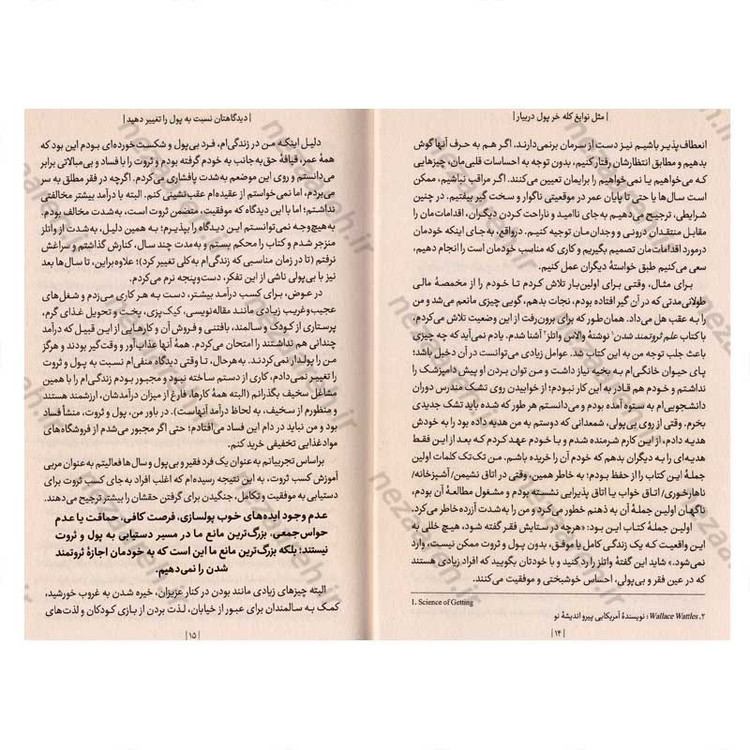 | مثل نوابغ کله خر پول دربیار |
انعطاف‌پذیر باشیم نیز دست از سرمان برنمی‌دارند. اگر هم به حرف آنها گوش
بدهیم و مطابق انتظارشان رفتار کنیم، بدون توجه به احساسات قلبی‌مان، چیزهایی
که می‌خواهیم یا نمی‌خواهیم را برایمان تعیین می‌کنند. اگر مراقب نباشیم، ممکن
است سال‌ها یا حتی تا پایان عمر در موقعیتی ناگوار و سخت گیر بیفتیم. در چنین
شرایطی، ترجیح می‌دهیم به جای ناامید و ناراحت کردن دیگران، اقدامات‌مان را
مقابل منتقدان درونی و وجدان‌مان توجیه کنیم. درواقع، به‌جای اینکه خودمان
درمورد اقدامات‌مان تصمیم بگیریم و کاری که مناسب خودمان است را انجام دهیم،
سعی می‌کنیم طبق خواستهٔ دیگران عمل کنیم.
برای مثال، وقتی برای اولین‌بار تلاش کردم تا خودم را از مخمصهٔ مالی
طولانی‌مدتی که در آن گیر افتاده بودم، نجات بدهم، گویی چیزی مانعم می‌شد و من
را به عقب هل می‌داد. همان‌طور که برای برون‌رفت از این وضعیت تلاش می‌کردم،
با کتاب علم ثروتمند شدن¹ نوشتهٔ والاس واتلز² آشنا شدم. یادم نمی‌آید که چه چیزی
باعث جلب توجه من به این کتاب شد. عوامل زیادی می‌توانست در آن دخیل باشد؛
پای حیوان خانگی‌ام به بخیه نیاز داشت و من توان بردن او پیش دامپزشک را
نداشتم و خودم هم قادر به این کار نبودم؛ از خوابیدن روی تشک مندرس دوران
دانشجویی‌ام به ستوه آمده بودم و می‌دانستم هر طور که شده باید تشک جدیدی
بخرم. وقتی از روی بی‌پولی، شمعدانی که دوستم به من هدیه داده بود را به خودش
هدیه دادم، از این کارم شرمنده شدم و با خودم عهد کردم که بعد از این فقط
هدیه‌ای را به دیگران بدهم که خودم آن را خریده باشم. من تک‌تک کلمات اولین
جملهٔ این کتاب را از حفظ بودم؛ به خاطر همین، وقتی در اتاق نشیمن/آشپزخانه/
ناهارخوری/ اتاق خواب یا اتاق پذیرایی نشسته بودم و مشغول مطالعهٔ آن بودم،
ناگهان اولین جملهٔ آن به ذهنم خطور می‌کرد و من را به‌شدت آزرده‌خاطر می‌کرد.
اولین جملهٔ کتاب این بود: «هرچه در ستایش فقر گفته شود، هیچ خللی به
این واقعیت که یک زندگی کامل یا موفق، بدون پول و ثروت ممکن نیست، وارد
نمی‌شود.» شاید این گفتهٔ واتلز را رد کنید و با خودتان بگویید که افراد زیادی هستند
که در عین فقر و بی‌پولی، احساس خوشبختی و موفقیت می‌کنند.
1. Science of Getting
۲. Wallace Wattles: نویسندهٔ آمریکایی پیرو اندیشهٔ نو
| ۱۴ |
| دیدگاهتان نسبت به پول را تغییر دهید |
دلیل اینکه من در زندگی‌ام، فرد بی‌پول و شکست خورده‌ای بودم این بود که
همهٔ عمر، قیافهٔ حق‌به‌جانب به خودم گرفته بودم و ثروت را با فساد و بی‌مبالاتی برابر
می‌دانستم و روی این موضعم به‌شدت پافشاری می‌کردم. اگرچه در فقر مطلق به سر
می‌بردم، اما نمی‌خواستم از عقیده‌ام عقب‌نشینی کنم. البته با درآمد بیشتر مخالفتی
نداشتم؛ اما با این دیدگاه که موفقیت، متضمن ثروت است، به‌شدت مخالف بودم.
به‌هیچ‌وجه نمی‌توانستم این دیدگاه را بپذیرم؛ به همین دلیل، به‌شدت از واتلز
منزجر شدم و کتاب را محکم بستم و به‌مدت چند سال، کنارش گذاشتم و سراغش
نرفتم (تا در زمان مناسبی که زندگی‌ام به‌کلی تغییر کرد)؛ علاوه‌براین، تا سال‌ها بعد
نیز با بی‌پولی ناشی از این تفکر، دست‌وپنجه نرم می‌کردم.
در عوض، برای کسب درآمد بیشتر، دست به هر کاری می‌زدم و شغل‌های
عجیب‌وغریب زیادی مانند مقاله‌نویسی، کیک‌پزی، پخت و تحویل غذای گرم،
پرستاری از کودک و سالمند، بافتنی و فروش آن و کارهایی از این قبیل که درآمد
چندانی هم نداشتند را امتحان می‌کردم. آنها عذاب‌آور و وقت‌گیر بودند و هرگز
من را پولدار نمی‌کردند. به‌هرحال، تا وقتی دیدگاه منفی‌ام نسبت به پول و ثروت
را تغییر نمی‌دادم، کاری از دستم ساخته نبود و مجبور بودم زندگی‌ام را با همین
مشاغل سخیف بگذرانم (البته همهٔ کارها، فارغ از میزان درآمدشان، ارزشمند هستند
و منظورم از سخیف، به لحاظ درآمد آنهاست). در باور من، پول و ثروت، منشأ فساد
بود و من نباید در دام این فساد می‌افتادم؛ حتی اگر مجبور می‌شدم از فروشگاه‌های
مواد غذایی تخفیفی خرید کنم.
براساس تجربیاتم به‌عنوان یک فرد فقیر و بی‌پول و سال‌ها فعالیتم به‌عنوان مربی
آموزش کسب ثروت، به این نتیجه رسیده‌ام که اغلب افراد به جای کسب ثروت برای
دستیابی به موفقیت و تکامل، جنگیدن برای گرفتن حقشان را بیشتر ترجیح می‌دهند.
عدم وجود ایده‌های خوب پولسازی، فرصت کافی، حماقت یا عدم
حواس‌جمعی، بزرگ‌ترین مانع ما در مسیر دستیابی به پول و ثروت
نیستند؛ بلکه بزرگ‌ترین مانع ما این است که به خودمان اجازهٔ ثروتمند
شدن را نمی‌دهیم.
البته چیزهای زیادی مانند بودن در کنار عزیزان، خیره شدن به غروب خورشید،
کمک به سالمندان برای عبور از خیابان، لذت بردن از بازی کودکان و لذت‌های
| ۱۵ |
nezaafeh.ir